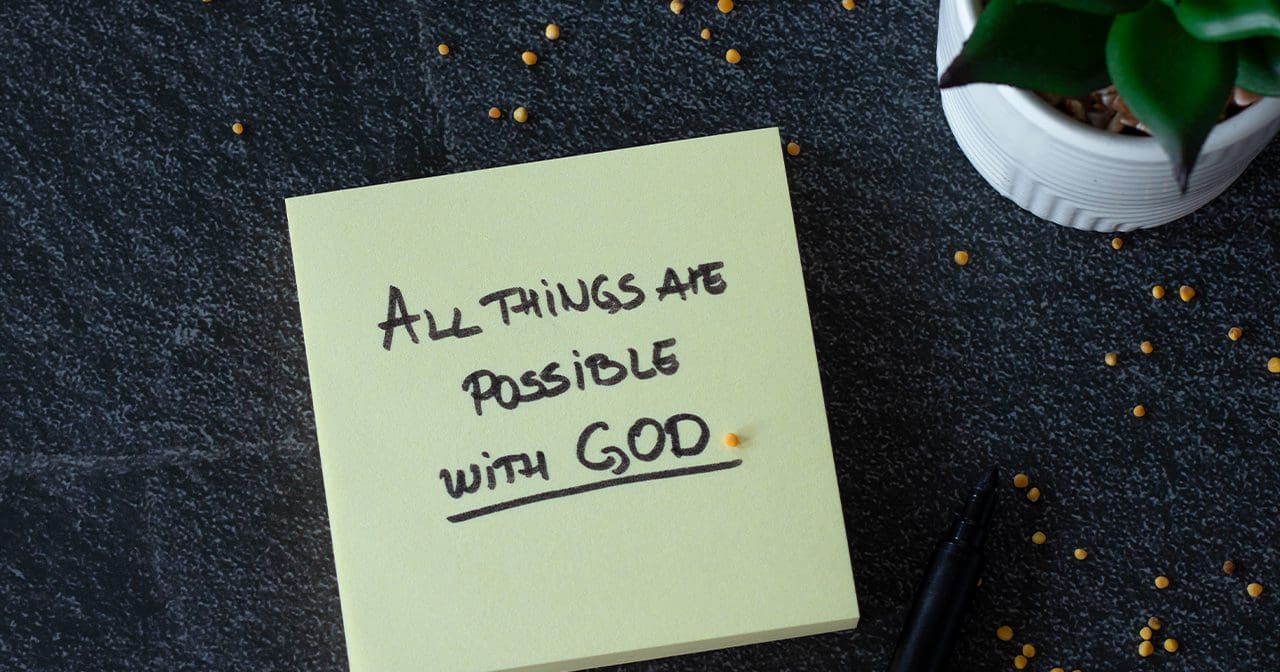 ALL THINGS ARE
POSSIBLE
WITH GOD